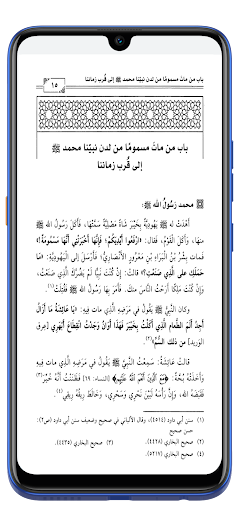 باب من مات مسمومًا من لدن نبيِّنا محمد ﷺ إلى قُرب زماننا
١٥
باب من مات مسمومًا من لدن نبيِّنا محمد ﷺ
إلى قُرب زماننا
محمد رَسُولُ اللَّهِ ﷺ:
أَهْدَتْ لَهُ ﷺ يَهُودِيَّةٌ بِخَيْبَرَ شَاةً مَصْلِيَّةً سَمَّتْهَا، فَأَكَلَ رَسُولُ اللَّهِ ﷺ
مِنْهَا، وَأَكَلَ الْقَوْمُ، فَقَالَ: «ارْفَعُوا أَيْدِيَكُمْ؛ فَإِنَّهَا أَخْبَرَتْنِي أَنَّهَا مَسْمُومَةٌ»،
فَمَاتَ بِشْرُ بْنُ الْبَرَاءِ بْنِ مَعْرُورٍ الْأَنْصَارِيُّ؛ فَأَرْسَلَ إِلَى الْيَهُودِيَّةِ: «مَا
حَمَلَكِ عَلَى الَّذِي صَنَعْتِ؟» قَالَتْ: إِنْ كُنْتَ نَبِيًّا لَمْ يَضُرَّكَ الَّذِي صَنَعْتُ،
وَإِنْ كُنْتَ مَلِكًا أَرَحْتُ النَّاسَ مِنْكَ. فَأَمَرَ بِهَا رَسُولُ اللَّهِ ﷺ فَقُتِلَتْ(١).
وكان النَّبِيُّ ﷺ يَقُولُ فِي مَرَضِهِ الَّذِي مَاتَ فِيهِ: «يَا عَائِشَةُ مَا أَزَالُ
أَجِدُ أَلَمَ الطَّعَامِ الَّذِي أَكَلْتُ بِخَيْبَرَ، فَهَذَا أَوَانُ وَجَدْتُ انْقِطَاعَ أَبْهَرِي [عِرق
الوَرِيدِ] مِنْ ذَلِكَ السُّمِّ»(٢).
قالت عَائِشَةُ: سَمِعْتُ النَّبِيَّ ﷺ يَقُولُ فِي مَرَضِهِ الَّذِي مات فِيهِ
وَأَخَذَتْهُ بُحَّةٌ: ﴿مَعَ الَّذِينَ أَنْعَمَ اللَّهُ عَلَيْهِم﴾ [النساء: ٦٩] فَظَنَنْتُ أَنَّهُ خُيِّرَ(٣)
فَقَبَضَهُ الله، وَإِنَّ رَأْسَهُ لَبَيْنَ نَحْرِي وَسَحْرِي، وَخَالَطَ رِيقُهُ رِيقِي(٤).
(١) سنن أبي داود (٤٥١٤)، وقال الألباني في صحيح وضعيف سنن أبي داود (ص٢):
حسن صحيح
(٢) صحيح البخاري (٤٤٢٨). (٣) صحيح البخاري (٤٤٣٥)
(٤) صحيح البخاري (٥٢١٧).